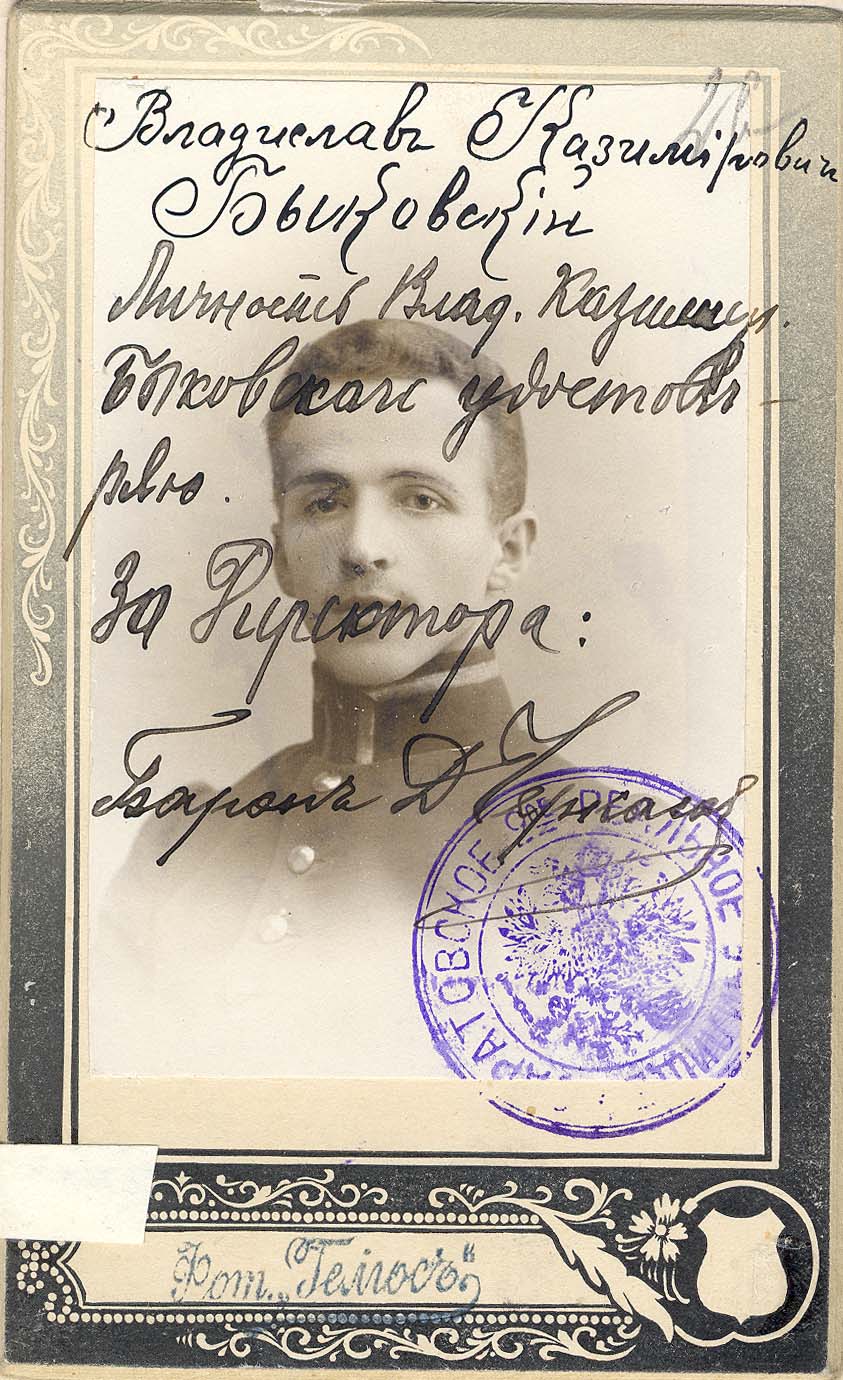 Владиславъ Казиміровичъ
Быковскій
Личность Влад. Казимир.
Быковскаго удостовѣ-
ряю.
За Директора:
Баронъ Д Черкасовъ
САРАТОВСКОЕ РЕАЛЬНОЕ
Фот. „Гелиосъ"